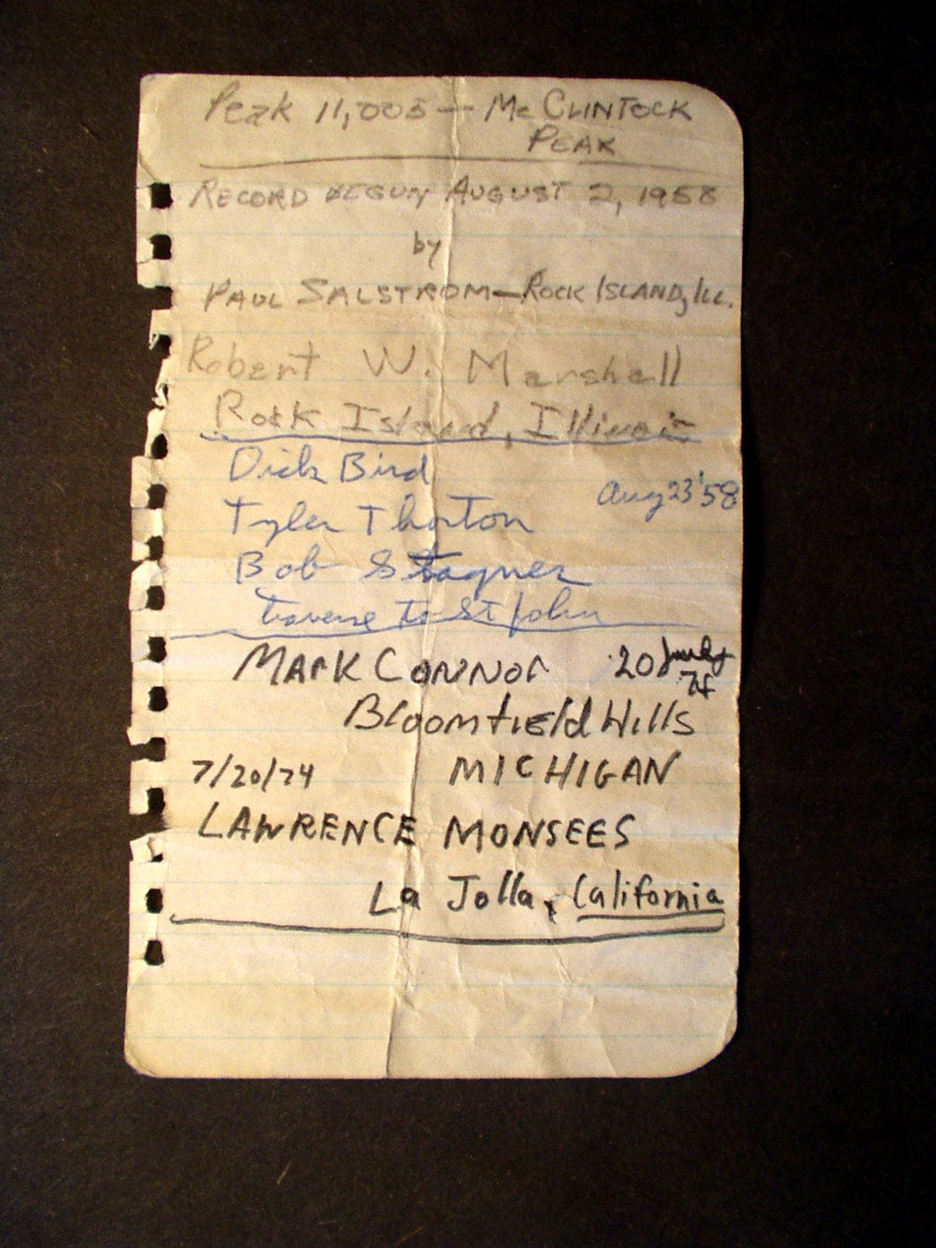 Peak 11,005 — McCLINTOCK
PEAK
RECORD BEGUN AUGUST 2, 1958
by
PAUL SALSTROM — ROCK ISLAND, ILL.
Robert W. Marshall
Rock Island, Illinois
Dick Bird
Aug 23 '58
Tyler Thorton
Bob Stagner
traverse to St John
MARK CONNOR 20 July
74
Bloomfield Hills
7/20/74 MICHIGAN
LAWRENCE MONSEES
La Jolla, California